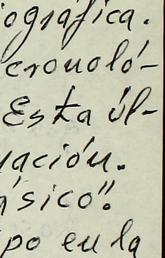 iográfica.
cronoló-
Esta úl-
uación.
ásico".
po en la